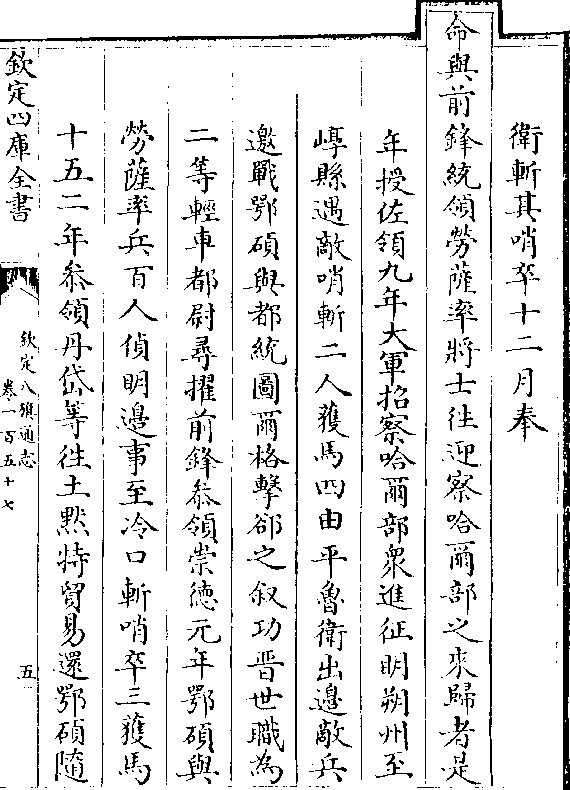 衛斬其哨卒十二月奉
命與前鋒統領勞薩率將士往迎察哈爾部之來歸者是
年授佐領九年大軍招察哈爾部衆進征明朔州至
崞縣遇敵哨斬二人獲馬四由平魯衛出邊敵兵
邀戰鄂碩與都統圖爾格擊郤之叙功晋世職為
二等輕車都尉尋擢前鋒叅領崇德元年鄂碩與
勞薩率兵百人偵明邊事至冷口斬哨卒三獲馬
十五二年叅領丹岱等往土黙特貿易還鄂碩隨
欽定四庫全書
欽定八旗通志
卷一百五十七
五